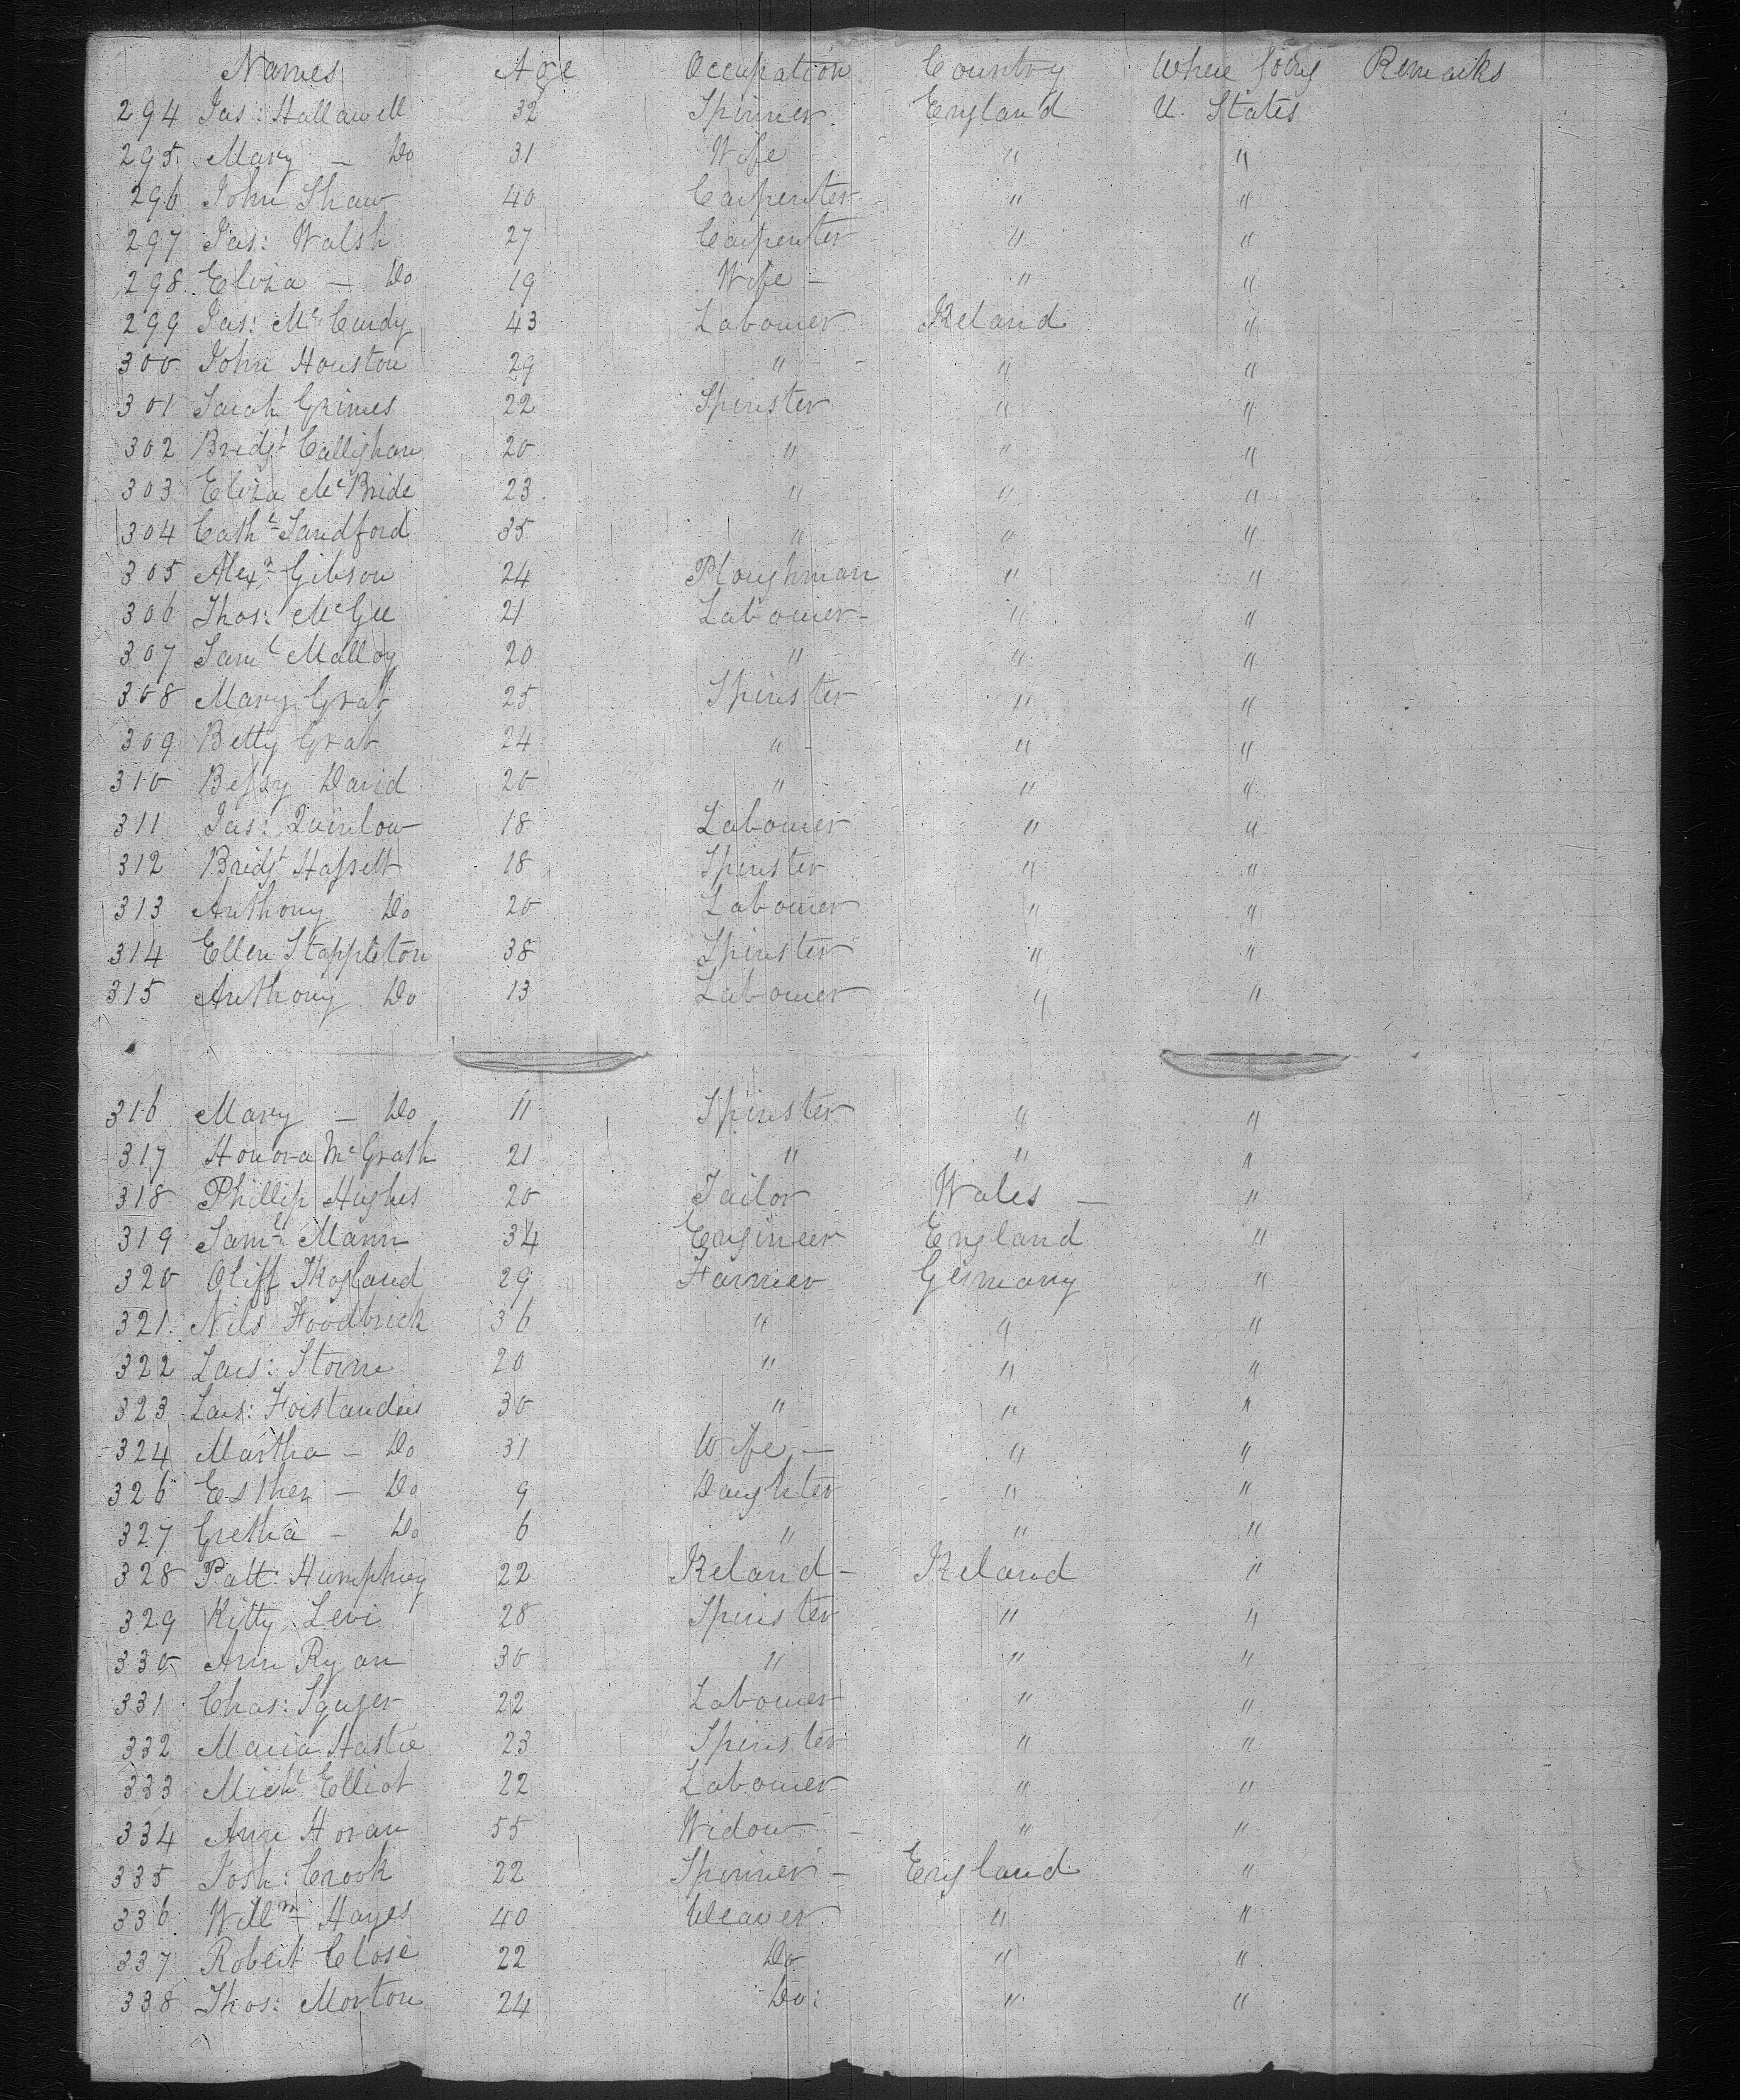 Names Age Occupation Country Where going Remarks
294 Jas: Hallawell 32 Spinner England U. States
295 Mary — Do 31 Wife " "
296 John Shaw 40 Carpenter " "
297 Jas: Walsh 27 Carpenter " "
298 Eliza — Do 19 Wife — " "
299 Jas: McCurdy 43 Labourer Ireland "
300 John Houston 29 " " "
301 Sarah Grimes 22 Spinster " "
302 Bridgt Callighan 20 " " "
303 Eliza McBride 23 " " "
304 Cathe Sandford 35 " " "
305 Alexr Gibson 24 Ploughman " "
306 Thos: McGee 21 Labourer " "
307 Saml Malloy 20 " " "
308 Mary Grat 25 Spinster " "
309 Betty Grat 24 " " "
310 Bessy David 20 " " "
311 Jas: Quinlow 18 Labourer " "
312 Bridgt Hassett 18 Spinster " "
313 Anthony Do 20 Labourer " "
314 Ellen Stappleton 38 Spinster " "
315 Anthony Do 13 Labourer " "
316 Mary — Do 11 Spinster " "
317 Honora McGrath 21 " " "
318 Phillip Hughes 20 Tailor Wales — "
319 Saml Mann 34 Engineer England "
320 Oliff 29 Farmer Germany "
321 Nils Foodbrick 36 " " "
322 Lars: Storne 20 " " "
323 Lars: 30 " " "
324 Martha — Do 31 Wife — " "
326 Esther — Do 9 Daughter " "
327 Gretha — Do 6 " " "
328 Patt: Humphrey 22 Ireland — Ireland "
329 Kitty Levi 28 Spinster " "
330 Ann Ryan 30 " " "
331 Chas: 22 Labourer " "
332 Maria Hastie 23 Spinster " "
333 Michl Elliot 22 Labourer " "
334 Ann Horan 55 Widow — " "
335 Josh: Crook 22 Spinner — England "
336 Willm Hayes 40 Weaver " "
337 Robert Close 22 Do " "
338 Thos: Morton 24 Do: " "